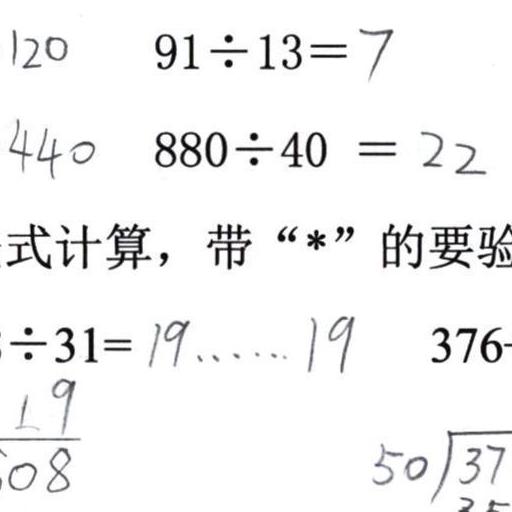 120 91÷13=7
440 880÷40 = 22
式计算，带“*”的要验
÷31=19……19 376
19
608 50 37
35